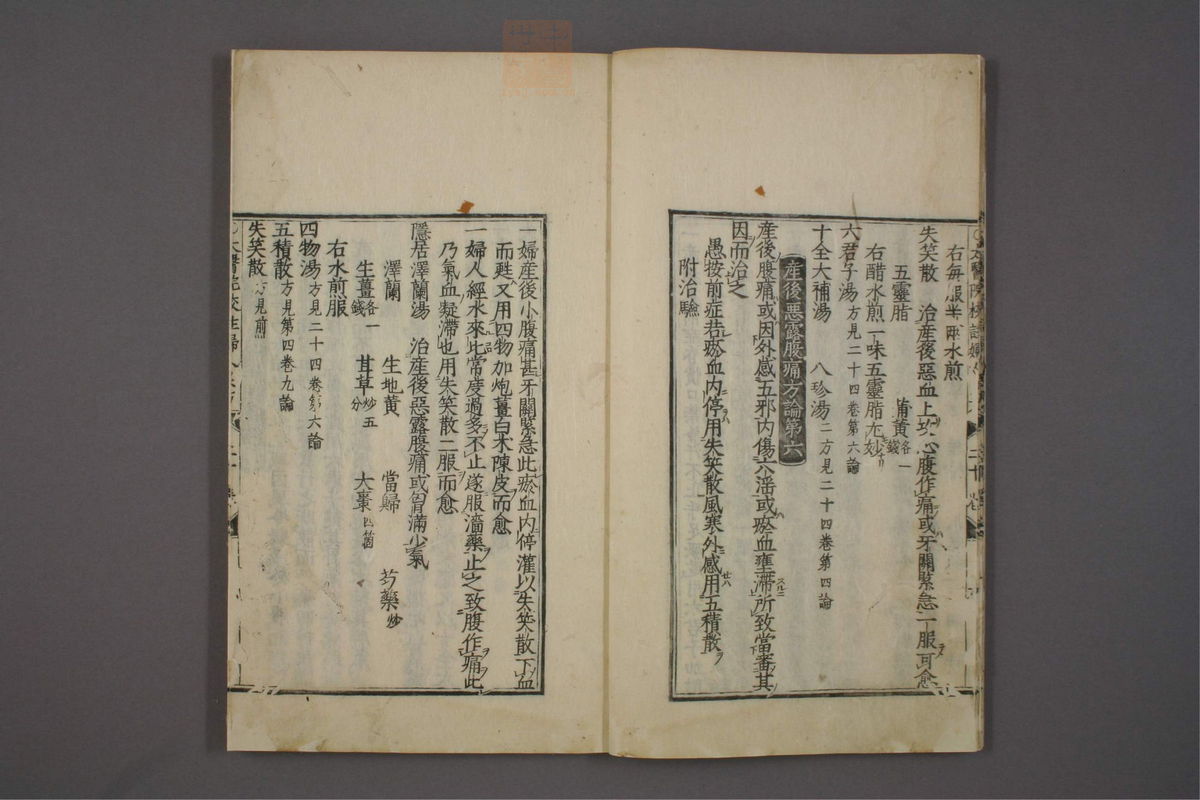 右每服半兩水煎
失笑散　治產後惡血上攻心腹作痛或牙關緊急一服可愈
五靈脂　蒲黃各一錢
右醋水煎一味五靈脂尤妙
六君子湯方見二十四卷第六論
十全大補湯　八珍湯二方見二十四卷第四論
產後惡露腹痛方論第六
產後腹痛或因外感五邪內傷六淫或瘀血壅滯所致當審其
因而治之
愚按前症若瘀血內停用失笑散風寒外感用五積散
附治驗
一婦產後小腹痛甚牙關緊急此瘀血內停灌以失笑散下血
而甦又用四物加炮薑白朮陳皮而愈
一婦人經水來比常度過多不止遂服濇藥止之致腹作痛此
乃氣血凝滯也用失笑散二服而愈
隱居澤蘭湯　治產後惡露腹痛或胷滿少氣
澤蘭　生地黃　當歸　芍藥炒
生薑各一錢　甘草炒五分　大棗四箇
右水煎服
四物湯方見二十四卷第六論
五積散方見第四卷九論
失笑散方見前